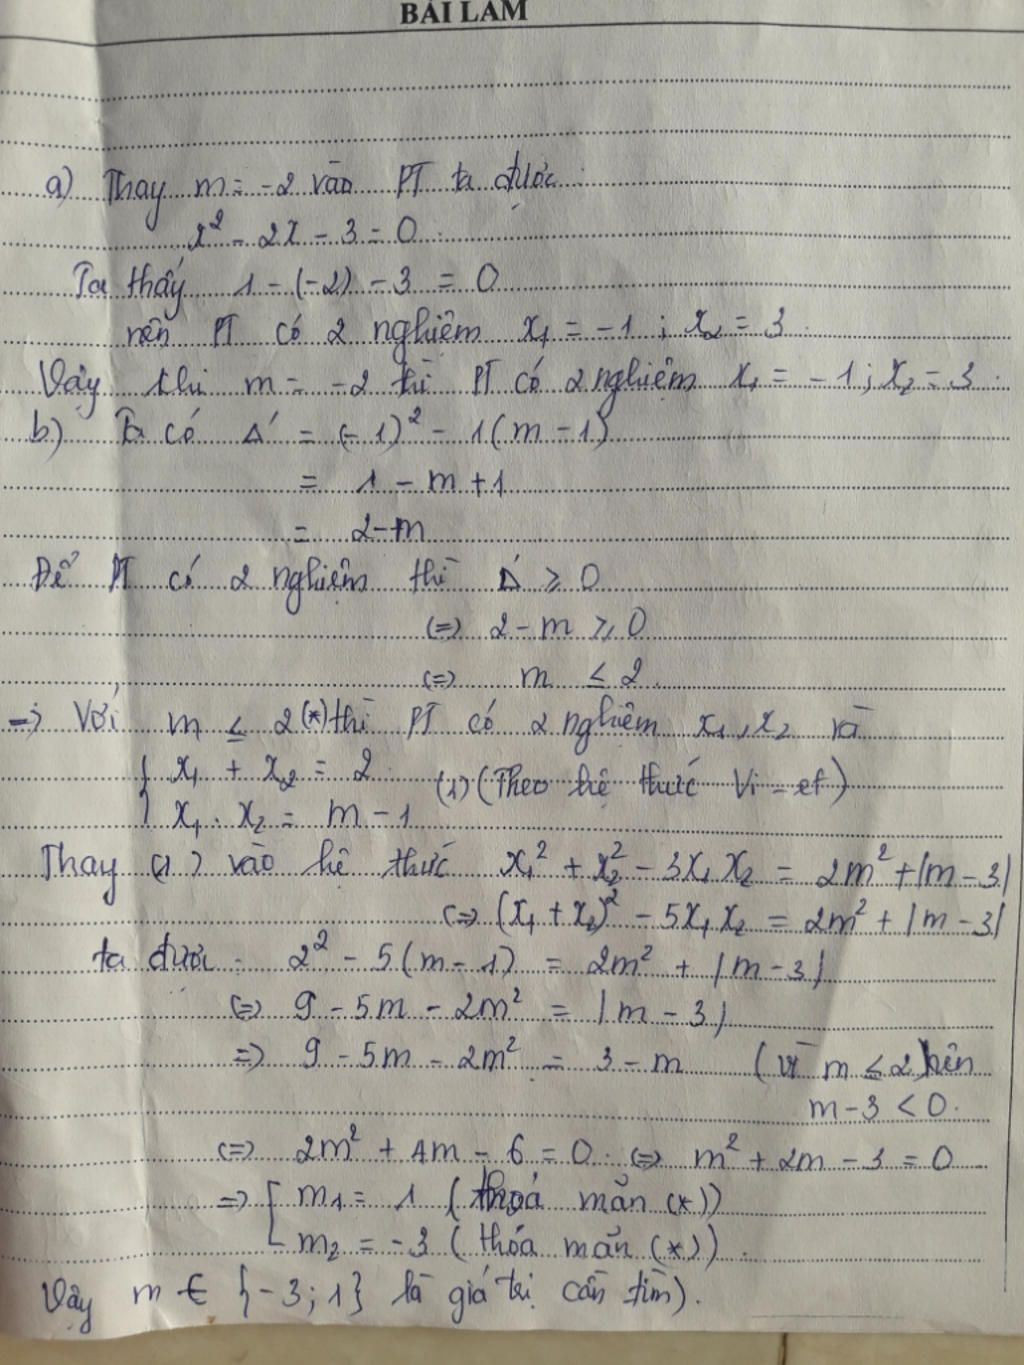 BÀI LÀM
a) Thay m = -2 vào PT ta được:
x² - 2x - 3 = 0
Ta thấy 1 - (-2) - 3 = 0
nên PT có 2 nghiệm x₁ = -1 ; x₂ = 3
Vậy khi m = -2 thì PT có 2 nghiệm x₁ = -1 ; x₂ = 3.
b) Ta có Δ' = (-1)² - 1(m - 1)
= 1 - m + 1
= 2 - m
Để PT có 2 nghiệm thì Δ' ≥ 0
(=) 2 - m ≥ 0
(=) m ≤ 2
=> Với m ≤ 2 (*) thì PT có 2 nghiệm x₁, x₂ và
{ x₁ + x₂ = 2
(1) (Theo hệ thức Vi-et)
x₁ . x₂ = m - 1
Thay (1) vào hệ thức x₁² + x₂² - 3x₁x₂ = 2m² + |m - 3|
(=) (x₁ + x₂)² - 5x₁x₂ = 2m² + |m - 3|
ta được: 2² - 5(m - 1) = 2m² + |m - 3|
(=) 9 - 5m - 2m² = |m - 3|
=> 9 - 5m - 2m² = 3 - m (vì m ≤ 2) nên
m - 3 < 0.
(=) 2m² + 4m - 6 = 0. (=) m² + 2m - 3 = 0
=> [ m₁ = 1 (thoả mãn (*))
m₂ = -3 (thỏa mãn (*)).
Vậy m ∈ {-3; 1} là giá trị cần tìm).